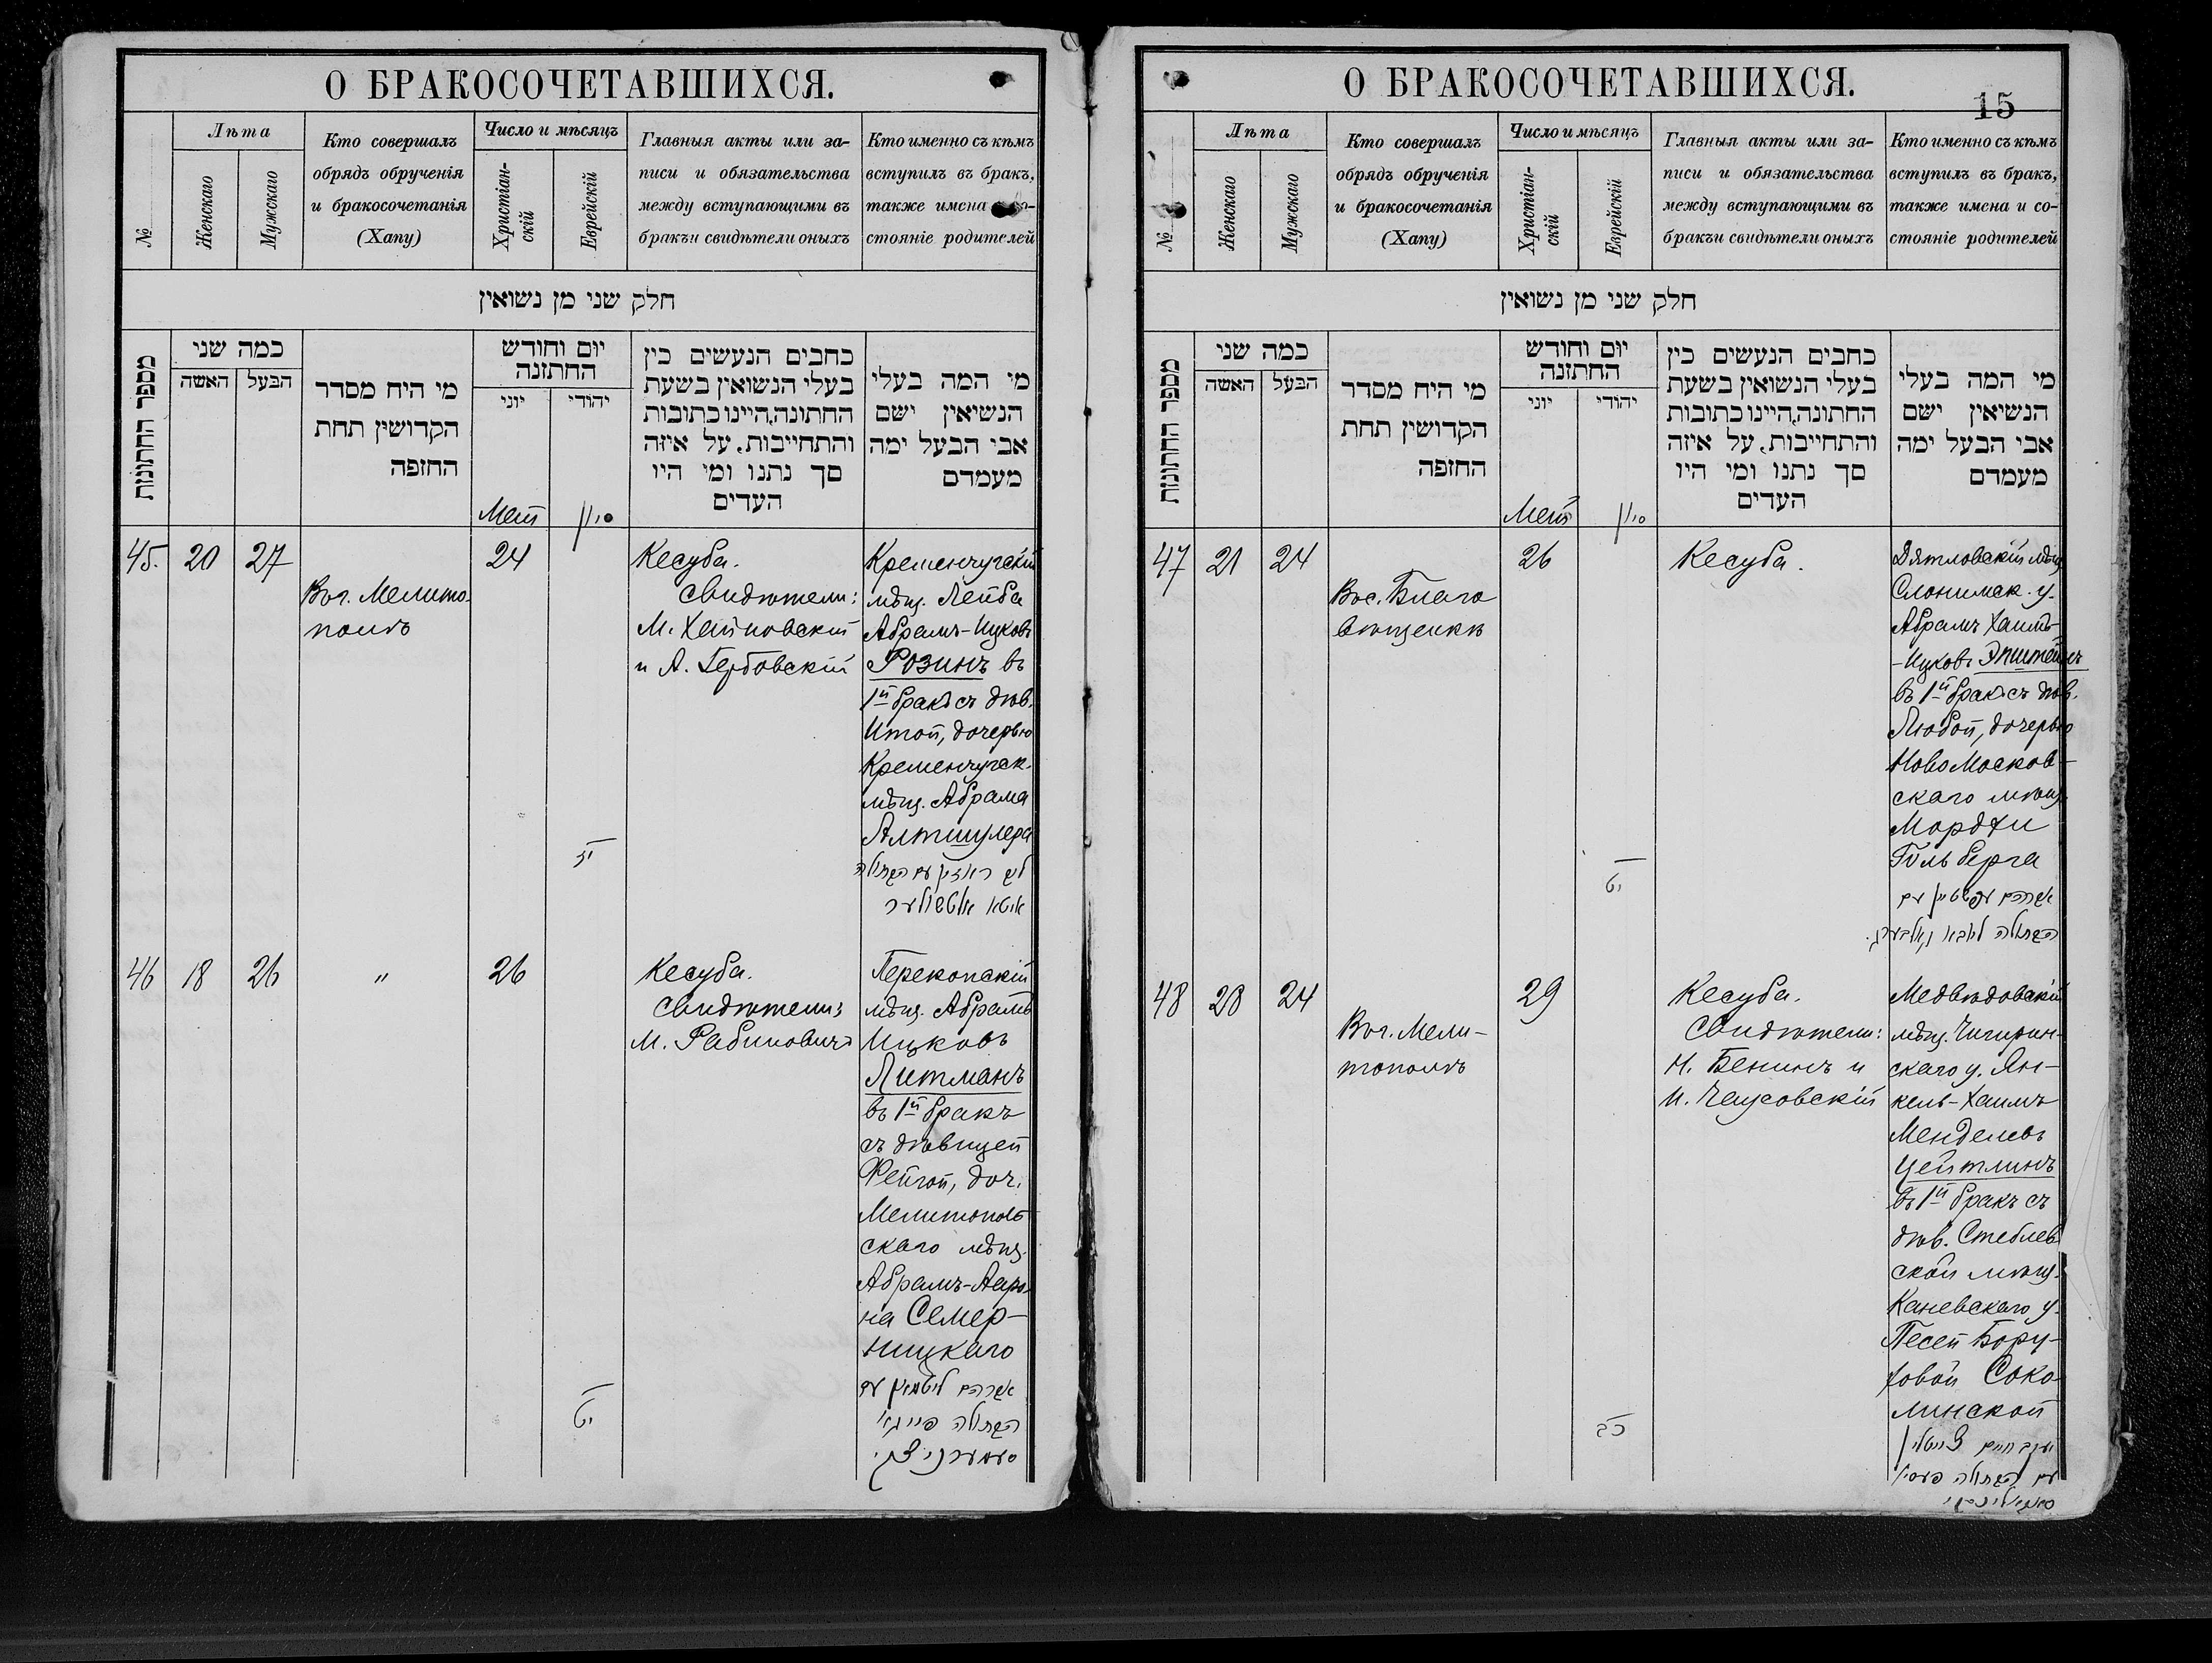 О БРАКОСОЧЕТАВШИХСЯ.
№
Лѣта
Женскаго
Мужскаго
Кто совершалъ
обрядъ обрученія
и бракосочетанія
(Хапу)
Число и мѣсяцъ
Христіан-
скій
Еврейскій
Главныя акты или за-
писи и обязательства
между вступающими въ
бракъи свидѣтели оныхъ
Кто именно съ кѣмъ
вступилъ въ бракъ,
также имена
стояніе родителей
חלק שני מן נשואין
מספר החתונות
כמה שני
האשה
הבעל
מי היח מסדר
הקדושין תחת
החופה
יום וחודש
החתונה
יוני
יהודי
כחבים הנעשים כין
בעלי הנשואין בשעת
החתונה,היינו כתובות
והתחייבות, על איזה
סך נתנו ומי היו
העדים
מי המה בעלי
הנשיאין ישם
אבי הבעל ימה
מעמדם
Мая
סיון
45. 20 27
Вог. Мелито-
полѣ
24
יז
Кесуба.
Свидѣтели:
М. Хайновскій
и А. Гербовскій
Кременчугскій
мѣщ. Лейба
Абрамъ-Ицковъ
Розинъ въ
1й бракъ съ дѣв.
Итой, дочерью
Кременчугск.
мѣщ. Абрама
Алтшулера
ליב ראזין עם הבתולה
איטא אלטשולער
46 18 26
"
26
יט
Кесуба.
Свидѣтели:
М. Рабиновичъ
Перекопскій
мѣщ. Абрамъ
Ицковъ
Литманъ
въ 1й бракъ
съ дѣвицей
Фейгой, доч.
Мелитополь-
скаго мѣщ.
Абрамъ-Ааро-
на Семер-
ницкаго
אברהם ליטמאן עם
הבתולה פייגא
סעמערניצקי
О БРАКОСОЧЕТАВШИХСЯ.
15
№
Лѣта
Женскаго
Мужскаго
Кто совершалъ
обрядъ обрученія
и бракосочетанія
(Хапу)
Число и мѣсяцъ
Христіан-
скій
Еврейскій
Главныя акты или за-
писи и обязательства
между вступающими въ
бракъи свидѣтели оныхъ
Кто именно съ кѣмъ
вступилъ въ бракъ,
также имена и со-
стояніе родителей
חלק שני מן נשואין
מספר החתונות
כמה שני
האשה
הבעל
מי היח מסדר
הקדושין תחת
החופה
יום וחודש
החתונה
יוני
יהודי
כחבים הנעשים כין
בעלי הנשואין בשעת
החתונה,היינו כתובות
והתחייבות, על איזה
סך נתנו ומי היו
העדים
מי המה בעלי
הנשיאין ישם
אבי הבעל ימה
מעמדם
Мая
סיון
47 21 24
Вос. Благо
вѣщенкѣ
26
יט
Кесуба.
Дятловскій мѣщ.
Слонимск. у.
Абрамъ Хаимъ-
-Ицковъ Эпштейнъ
въ 1й бракъ съ дѣв.
Любой, дочерью
НовоМосков-
скаго мѣщ.
Мордхи
Гольберга
אברהם עפשטיין עם
הבתולה ליובא גאלבערג.
48 28 24
Вог. Мели-
тополѣ
29
כב
Кесуба.
Свидѣтели:
Н. Бенинъ и
И. Чаусовскій
Медвѣдовскій
мѣщ. Чигирин-
скаго у. Ян-
кель-Хаимъ
Менделевъ
Цейтлинъ
въ 1й бракъ съ
дѣв. Стеблев-
ской мѣщ.
Каневскаго у.
Песей Бору-
ховой Соко-
линской
יעקב חיים צייטלין
עם הבתולה פעסיא
סאקאלינסקי